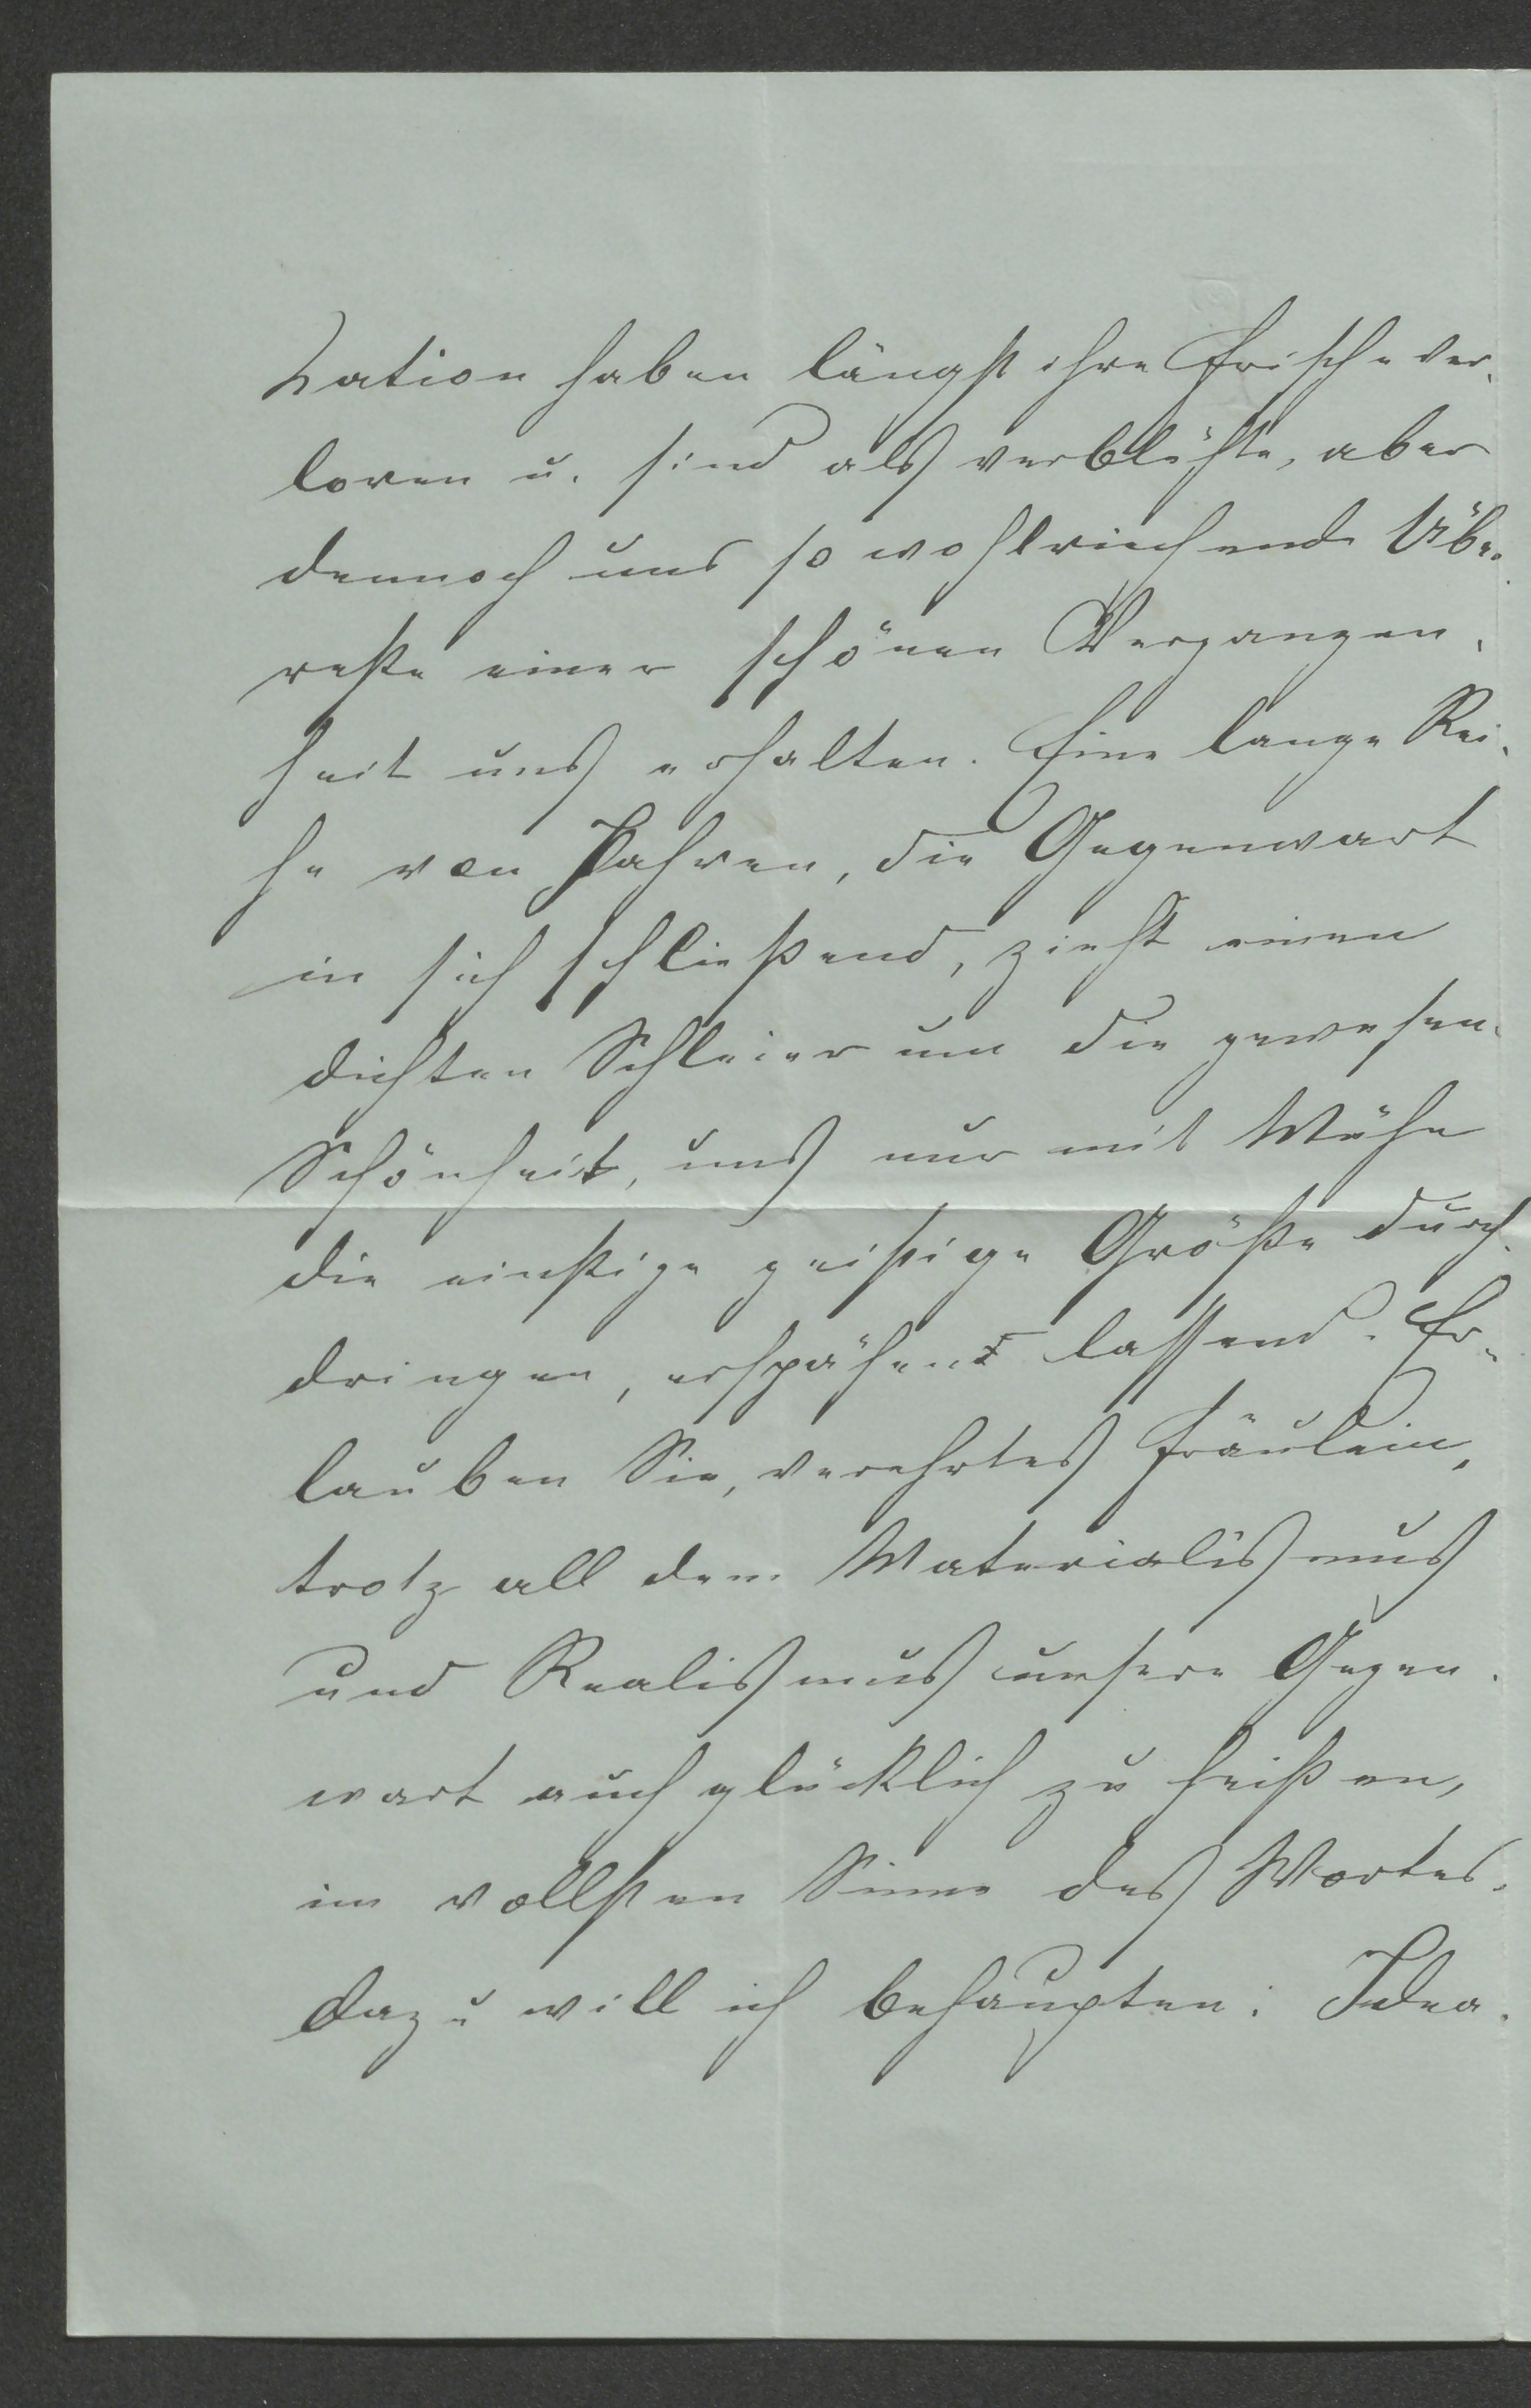 Nation haben längst ihre Frische ver-
loren u. sind als verblühte, aber
dennoch uns so wohlriechende Übe-
reste einer schönen Vergangen-
heit uns erhalten. Eine lange Rei-
he von Jahren, die Gegenwart
in sich schließend, zieht einen
dichten Schleier um die gewesen-
Schönheit, uns nur mit Mühe
die einstige geistige Größe durch-
dringen, erspähen lassend. Er-
lauben Sie, verehrtes Fräulein,
trotz all dem Materialismus
und Realismus unsere Gegen-
wart auch glücklich zu heißen,
im vollsten Sinne des Wortes.
Dazu will ich behaupten: Idea-